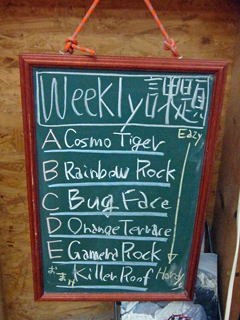 Weekly課題
Eazy
A Cosmo Tiger
B Rainbow Rock
C Bug Face
D Orange Terrace
E Gamera Rock
おまけ Killer Roof Hardy